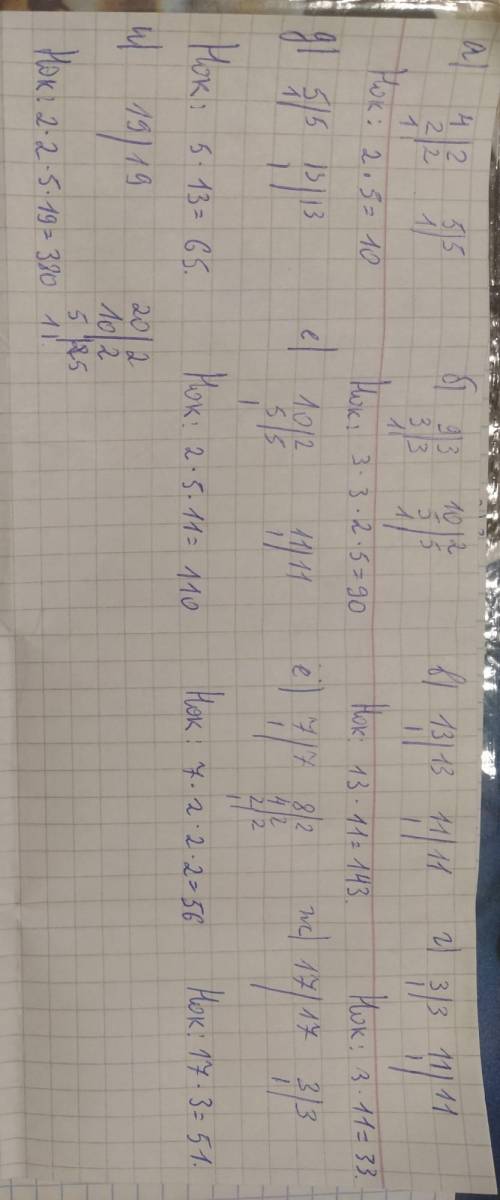 а) 4|2 5|5 б) 9|3 10|2 в) 13|13 11|11 г) 3|3 11|11
2|2 1| 3|3 5|5 1| 1| 1| 1|
1| 1| 1|
Нок: 2·5=10 Нок: 3·3·2·5=90 Нок: 13·11=143. Нок: 3·11=33.
д) 5|5 13|13 е) 10|2 11|11 ё) 7|7 8|2 ж) 17|17 3|3
1| 1| 5|5 1| 1| 4|2 | 1|
1 2|2
1|
Нок: 5·13=65. Нок: 2·5·11=110 Нок: 7·2·2·2=56 Нок: 17·3=51.
и) 19|19 20|2
10|2
5|5
1|.
Нок: 2·2·5·19=380